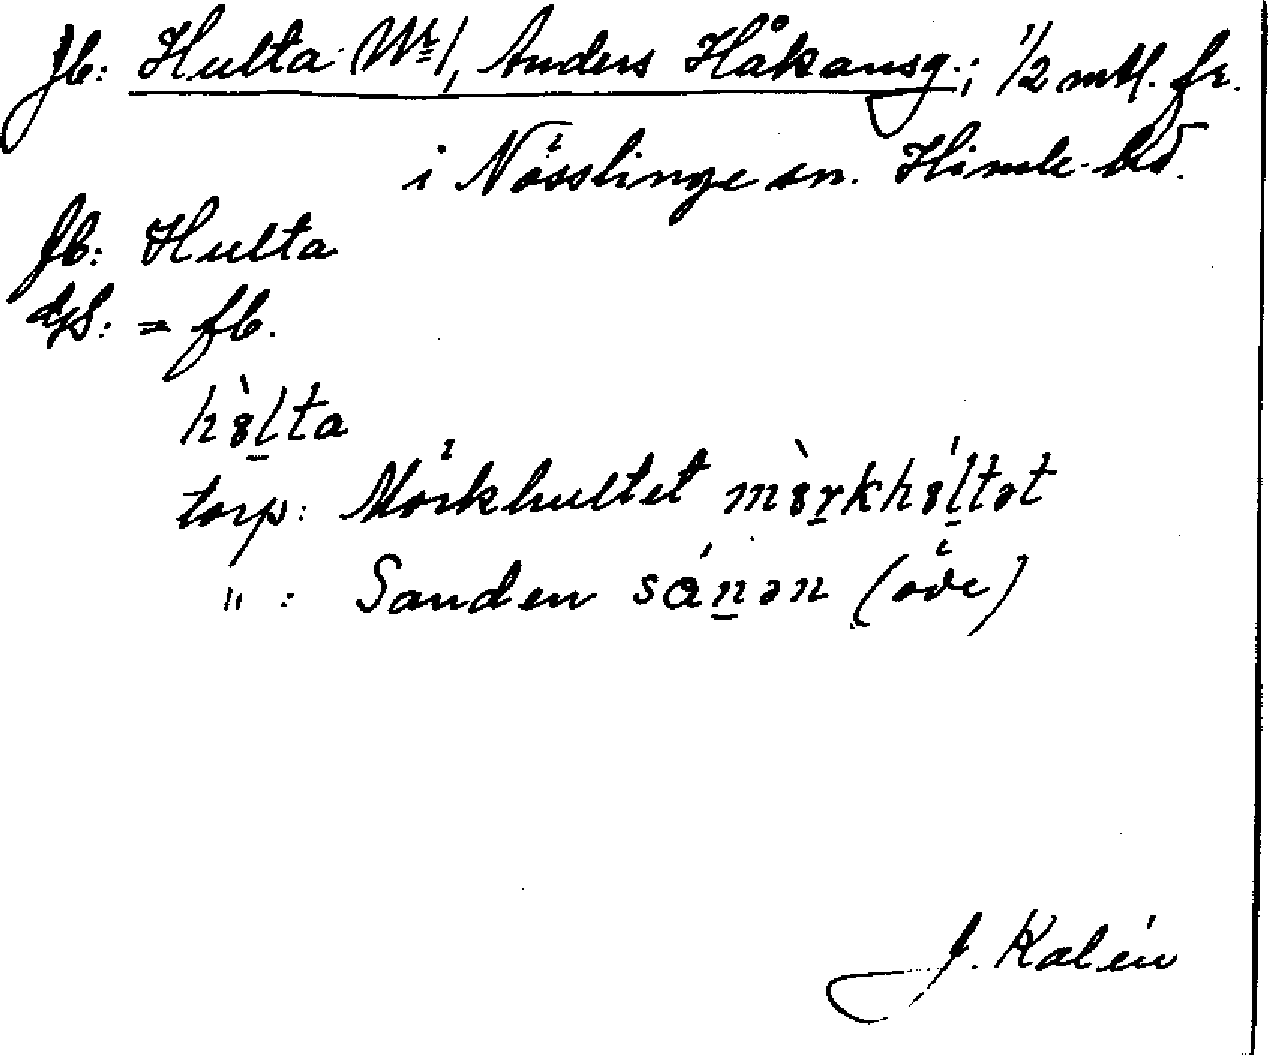 jb: Hulta Nr 1, Anders Håkansg.; 1/2 mtl. fr.
i Nösslinge sn. Himle hd.
fb: Hulta
dps: = fb.
hɞ̀l̠ta
torp: Mörkhultet mɞ̀r̠khɞ́l̠tət
" : Sanden sán̠ən (öde)
J. Kalén